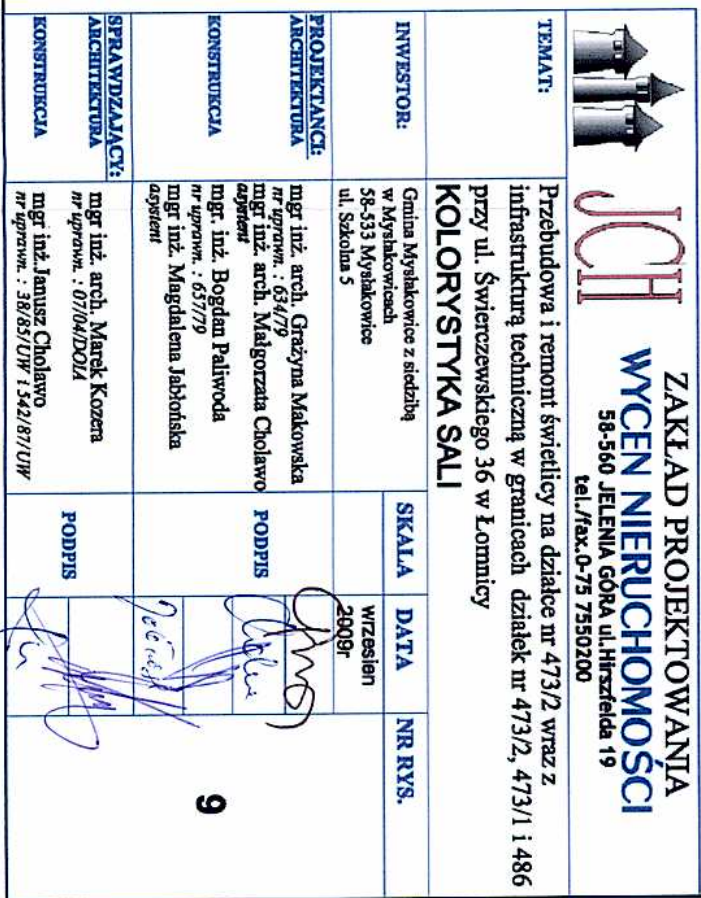 JCH
ZAKŁAD PROJEKTOWANIA
WYCEN NIERUCHOMOŚCI
58-560 JELENIA GÓRA ul.Hirszfelda 19
tel./fax.0-75 7550200
TEMAT:
Przebudowa i remont świetlicy na działce nr 473/2 wraz z
infrastrukturą techniczną w granicach działek nr 473/2, 473/1 i 486
przy ul. Świerczewskiego 36 w Łomnicy
KOLORYSTYKA SALI
INWESTOR:
Gmina Mysłakowice z siedzibą
w Mysłakowicach
58-533 Mysłakowice
ul. Szkolna 5
SKALA
DATA
NR RYS.
wrzesien
2009r
PROJEKTANCI:
ARCHITEKTURA
mgr inż. arch. Grażyna Makowska
nr uprawn. : 634/79
mgr inż. arch. Małgorzata Cholawo
asystent
KONSTRUKCJA
mgr. inż. Bogdan Paliwoda
nr uprawn. : 657/79
mgr inż. Magdalena Jabłońska
asystent
PODPIS
9
SPRAWDZAJĄCY:
ARCHITEKTURA
mgr inż. arch. Marek Kozera
nr uprawn. : 07/04/DOIA
KONSTRUKCJA
mgr inż.Janusz Cholawo
nr uprawn. : 38/85/UW i 542/87/UW
PODPIS